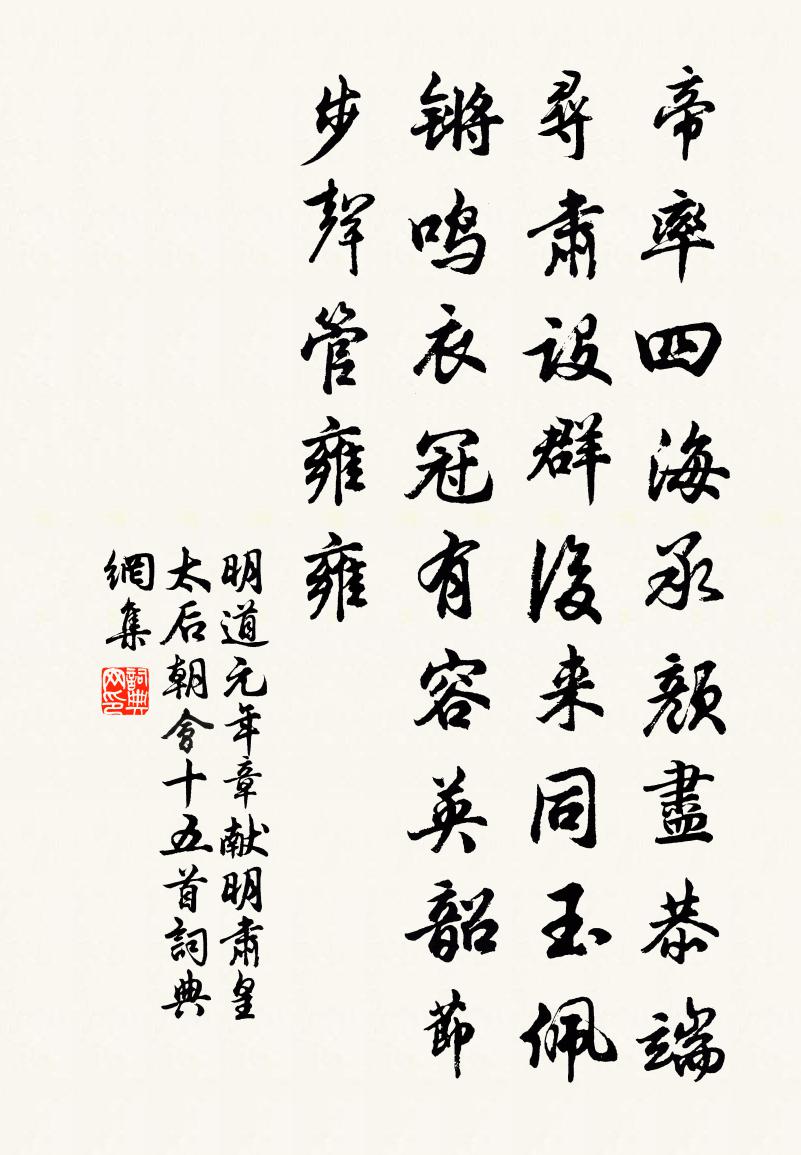 帝率四海承颜盡恭端
尋肃設群後来同玉佩
锵鸣衣冠有容英韶節
步聲管雍雍
明道元年章献明肃皇
太后朝會十五首詞典
網集
詞典
网印